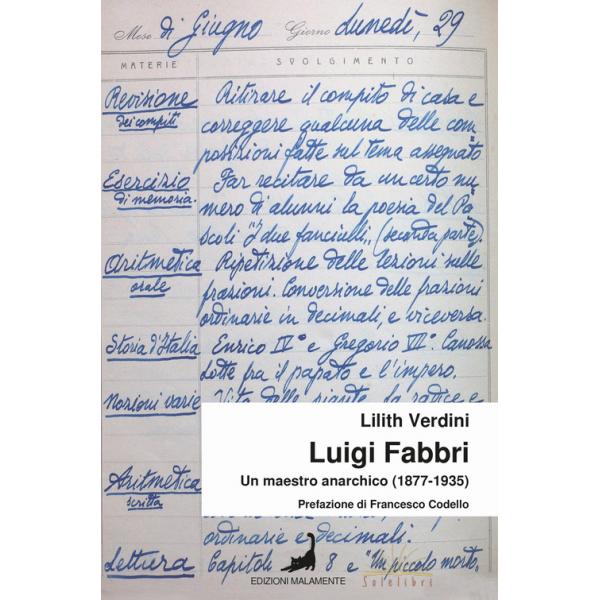 Mese di Giugno Giorno Lunedì, 29
MATERIE SVOLGIMENTO
Revisione dei compiti
Ritirare il compito di casa e
correggere qualcuna delle com
posizioni fatte sul tema assegnato
Esercizio di memoria.
Far recitare da un certo nu
mero di alunni la poesia del Pa
scoli "I due fanciulli„ (seconda parte).
Aritmetica orale
Ripetizione delle lezioni sulle
frazioni. Conversione delle frazioni
ordinarie in decimali, e viceversa.
Storia d'Italia
Enrico IV° e Gregorio VII°. Canossa
Lotte fra il papato e l'impero.
Nozioni varie
Vita delle piante. La radice e
Lilith Verdini
Luigi Fabbri
Un maestro anarchico (1877-1935)
Prefazione di Francesco Codello
Aritmetica scritta
ordinarie e decimali.
Lettura
Capitoli 8 e "Un piccolo morto„
EDIZIONI MALAMENTE
Solelibri